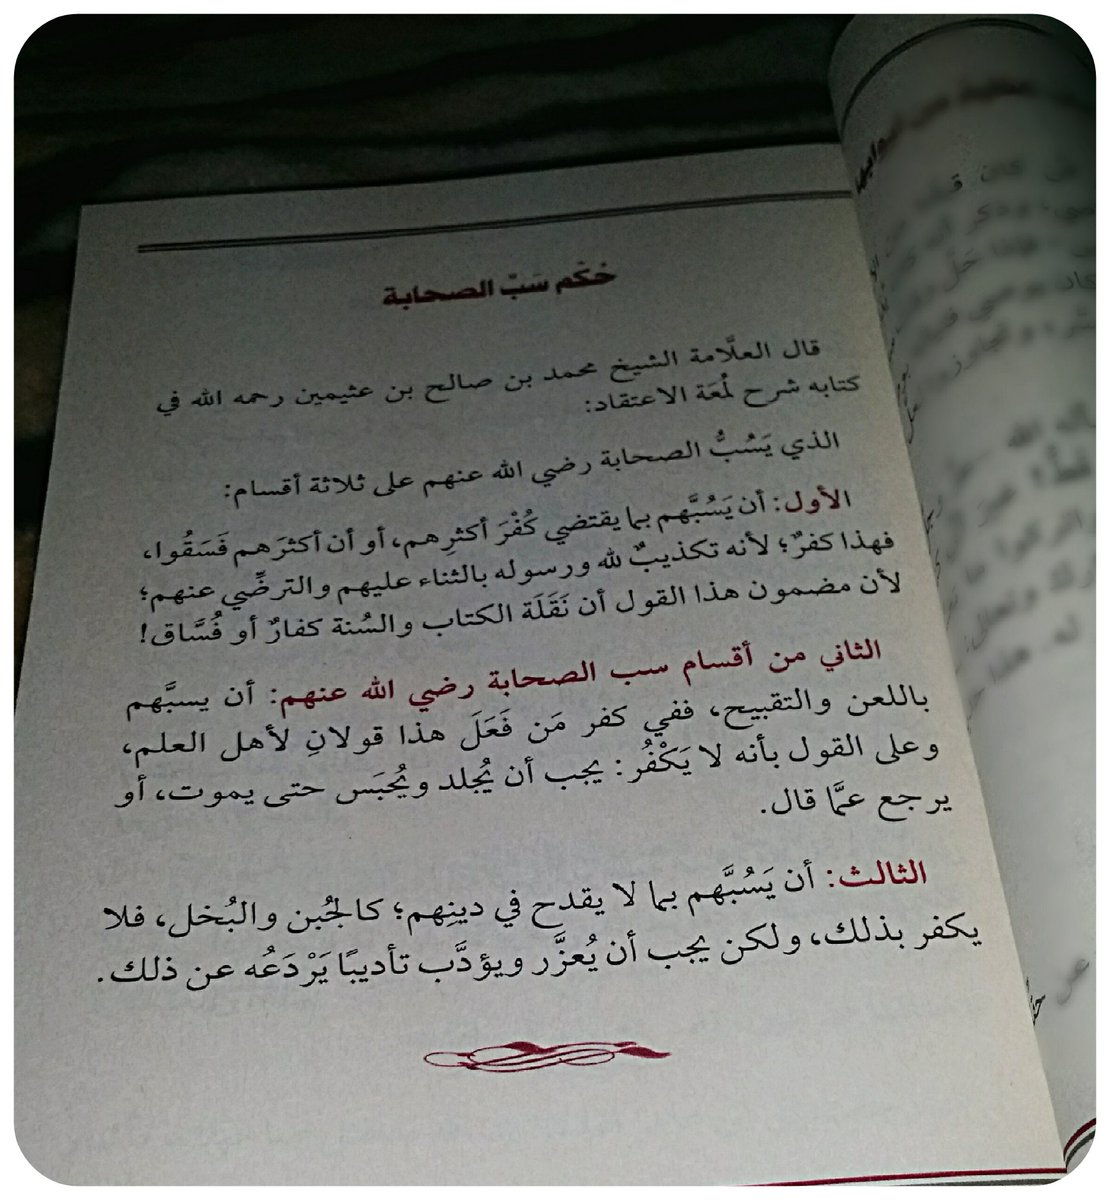 حُكْم سَبّ الصحابة
قال العلَّامة الشيخ محمد بن صالح بن عثيمين رحمه الله في
كتابه شرح لُمعَة الاعتقاد:
الذي يَسُبُّ الصحابة رضي الله عنهم على ثلاثة أقسام:
الأول: أن يَسُبَّهم بما يقتضي كُفْرَ أكثرِهم، أو أن أكثرَهم فَسَقُوا،
فهذا كفرٌ؛ لأنه تكذيبٌ لله ورسوله بالثناء عليهم والترضِّي عنهم؛
لأن مضمون هذا القول أن نَقَلَة الكتاب والسُنة كفارٌ أو فُسَّاق!
الثاني من أقسام سب الصحابة رضي الله عنهم: أن يسبَّهم
باللعن والتقبيح، ففي كفر مَن فَعَلَ هذا قولانِ لأهل العلم،
وعلى القول بأنه لا يَكْفُر: يجب أن يُجلد ويُحبَس حتى يموت، أو
يرجع عمَّا قال.
الثالث: أن يَسُبَّهم بما لا يقدح في دينِهم؛ كالجُبن والبُخل، فلا
يكفر بذلك، ولكن يجب أن يُعزَّر ويؤدَّب تأديبًا يَرْدَعُه عن ذلك.